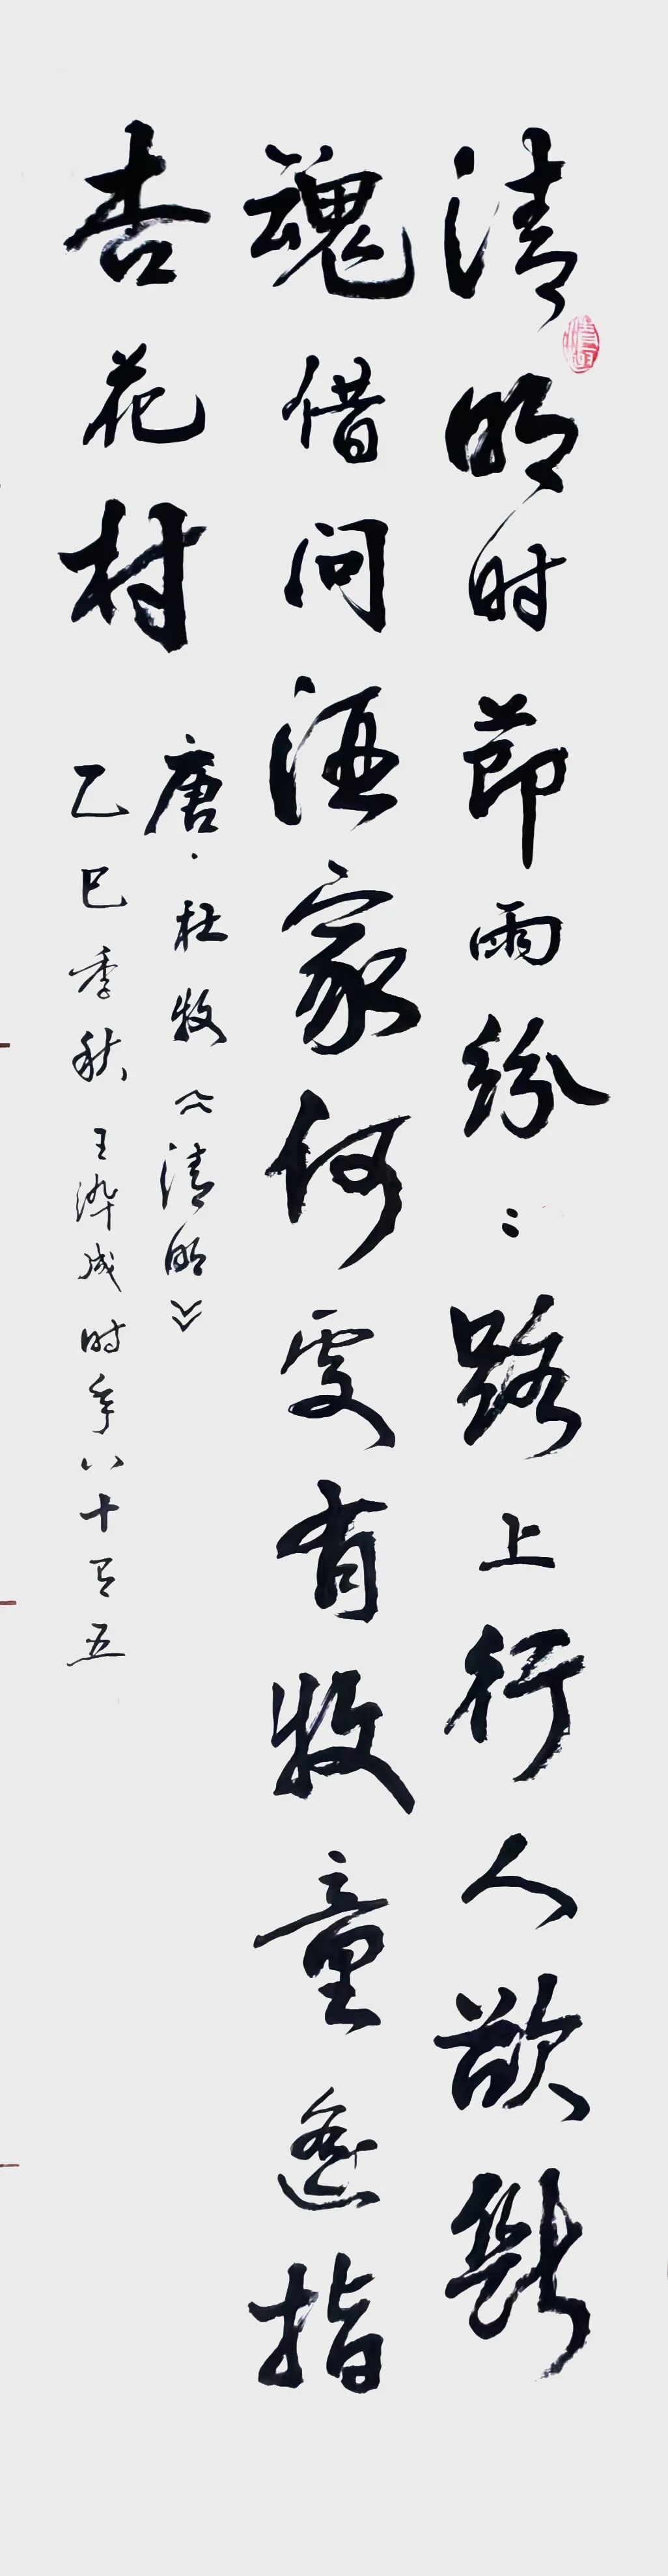 清明时節雨紛〻路上行人欲斷
魂借问酒家何處有牧童遙指
杏花村
唐·杜牧《清明》
乙巳季秋 王 成时年八十有五